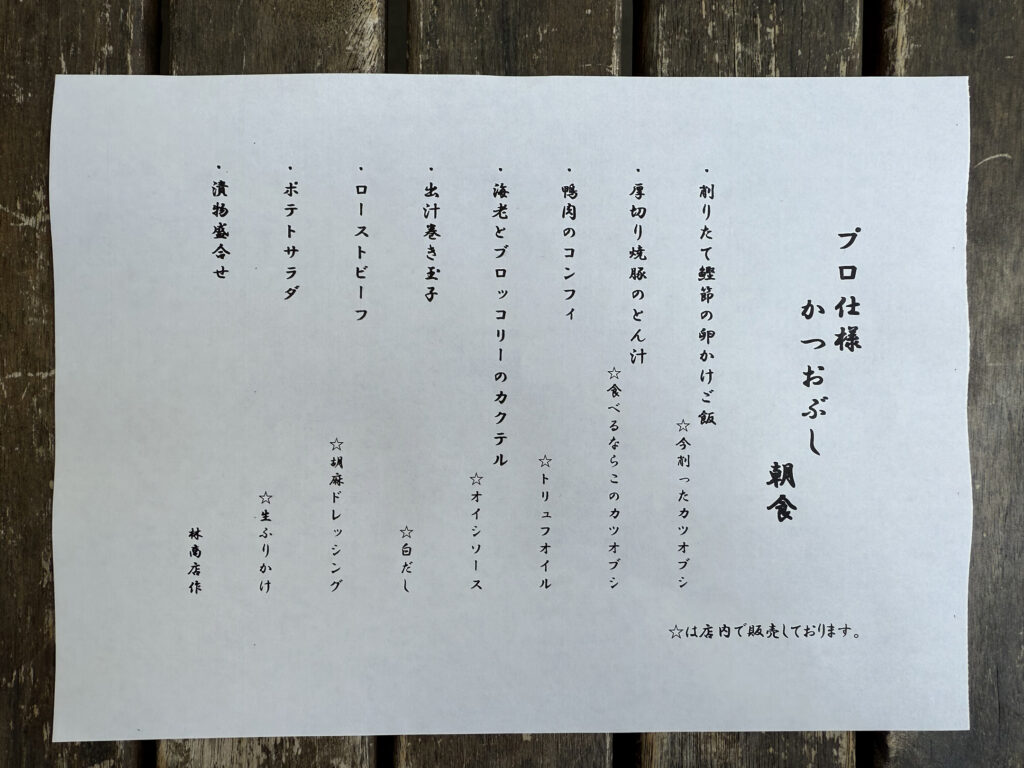 プロ仕様
かつおぶし
朝食
・削りたて鰹節の卵かけご飯
☆今削ったカツオブシ
・厚切り焼豚のとん汁
☆食べるならこのカツオブシ
・鴨肉のコンフィ
☆トリュフオイル
・海老とブロッコリーのカクテル
☆オイシソース
・出汁巻き玉子
☆白だし
・ローストビーフ
☆胡麻ドレッシング
・ポテトサラダ
☆生ふりかけ
・漬物盛合せ
林商店作
☆は店内で販売しております。